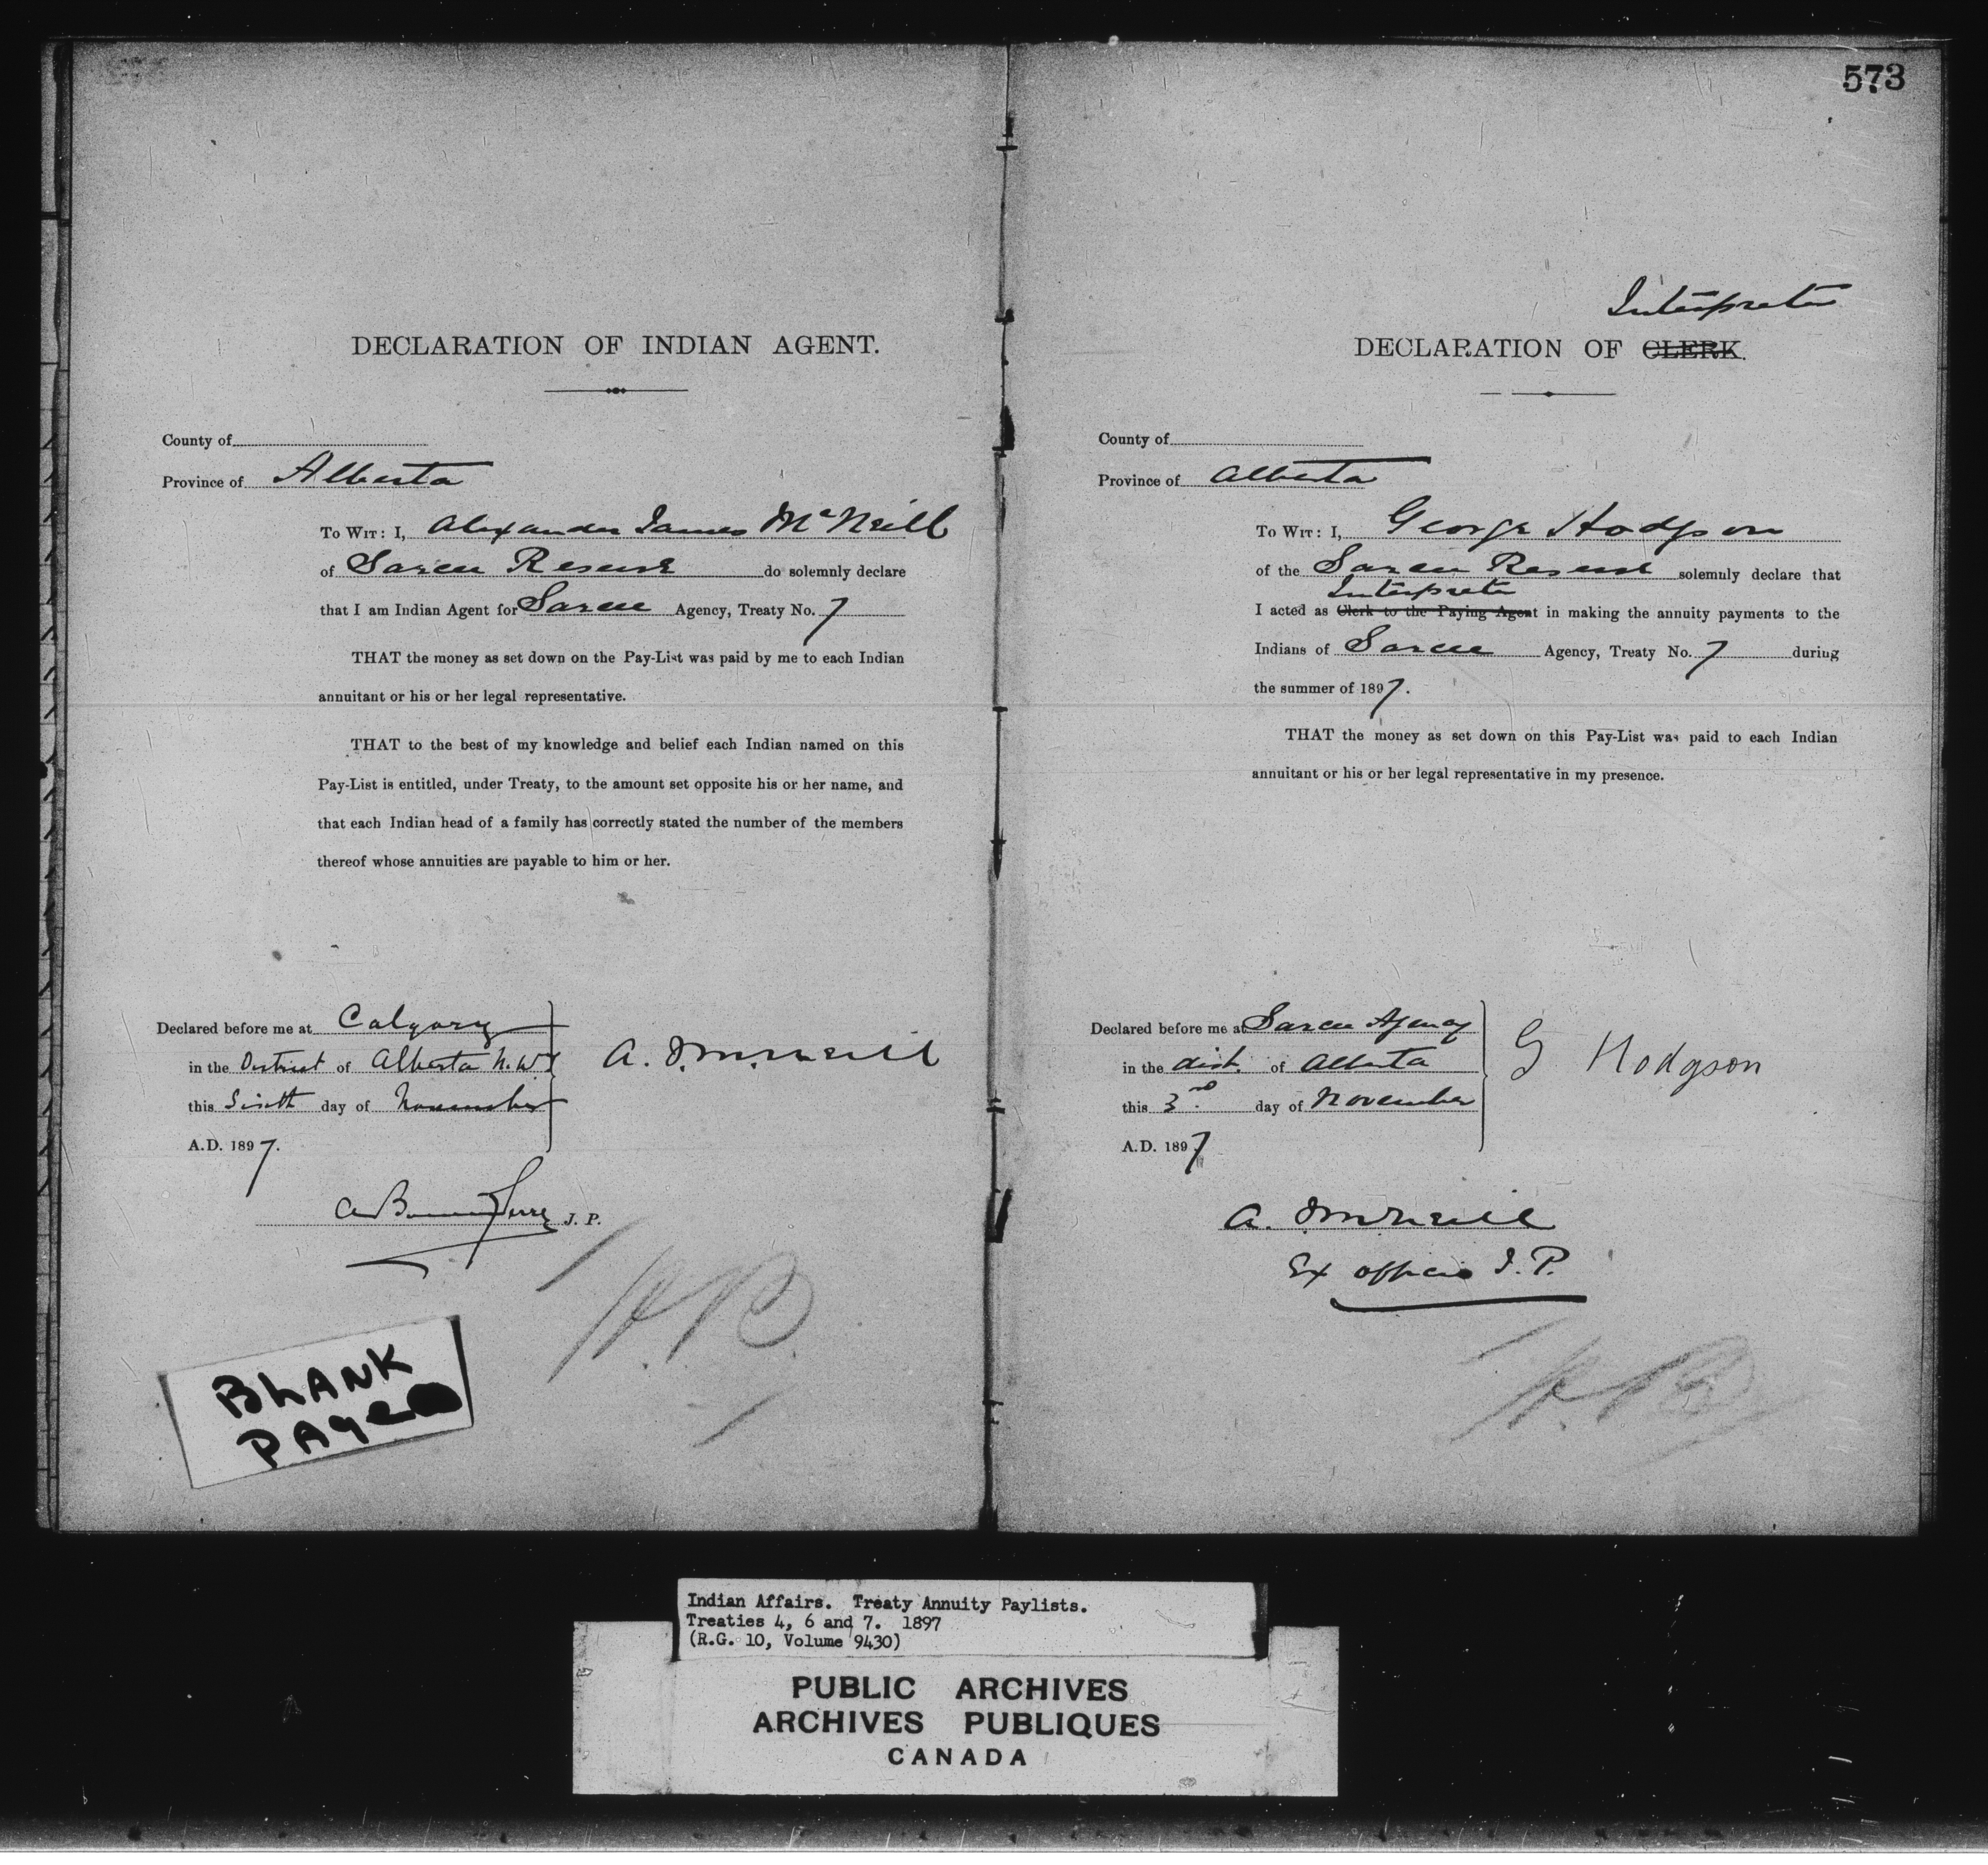 573
DECLARATION OF INDIAN AGENT.
County of
Province of Alberta
To Wit: I, Alexander James McNeill
of Sarcee Reserve do solemnly declare
that I am Indian Agent for Sarcee Agency, Treaty No. 7
THAT the money as set down on the Pay-List was paid by me to each Indian
annuitant or his or her legal representative.
THAT to the best of my knowledge and belief each Indian named on this
Pay-List is entitled, under Treaty, to the amount set opposite his or her name, and
that each Indian head of a family has correctly stated the number of the members
thereof whose annuities are payable to him or her.
Declared before me at Calgary
in the District of Alberta N.W.T
this Sixth day of November
A.D. 1897.
A. J. McNeill
J. P.
H.R.
BLANK
PAge
Interpreter
DECLARATION OF CLERK.
County of
Province of Alberta
To Wit: I, George Hodgson
of the Sarcee Reserve solemnly declare that
Interpreter
I acted as Clerk to the Paying Agent in making the annuity payments to the
Indians of Sarcee Agency, Treaty No. 7 during
the summer of 1897.
THAT the money as set down on this Pay-List was paid to each Indian
annuitant or his or her legal representative in my presence.
Declared before me at Sarcee Agency
in the dist. of Alberta
this 3rd. day of November
A.D. 1897
G Hodgson
A. J. McNeill
Ex officio J. P.
H.R.
Indian Affairs. Treaty Annuity Paylists.
Treaties 4, 6 and 7. 1897
(R.G. 10, Volume 9430)
PUBLIC ARCHIVES
ARCHIVES PUBLIQUES
CANADA